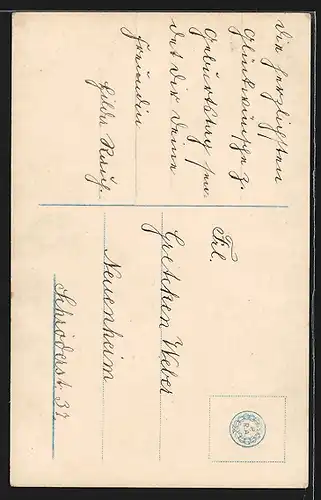 Die herzlichsten
Glückwünsche z.
Geburtstag sen-
det dir deine
Freundin
Hilde Rauh
Frl.
Gretchen Weber
Neuenheim
Schröderst 37